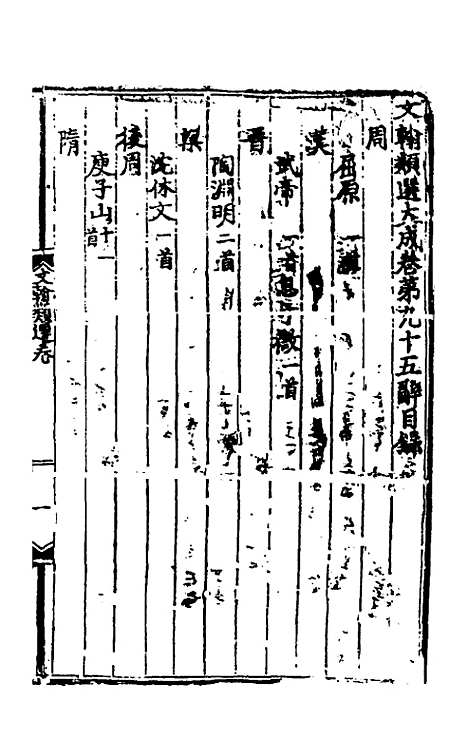 文翰類選大成卷第九十五辭目錄
周
屈原一首
漢
武帝一首息夫微一首
晉
陶淵明二首
梁
沈休文一首
後周
庾子山十一首
隋
文翰類選卷
一